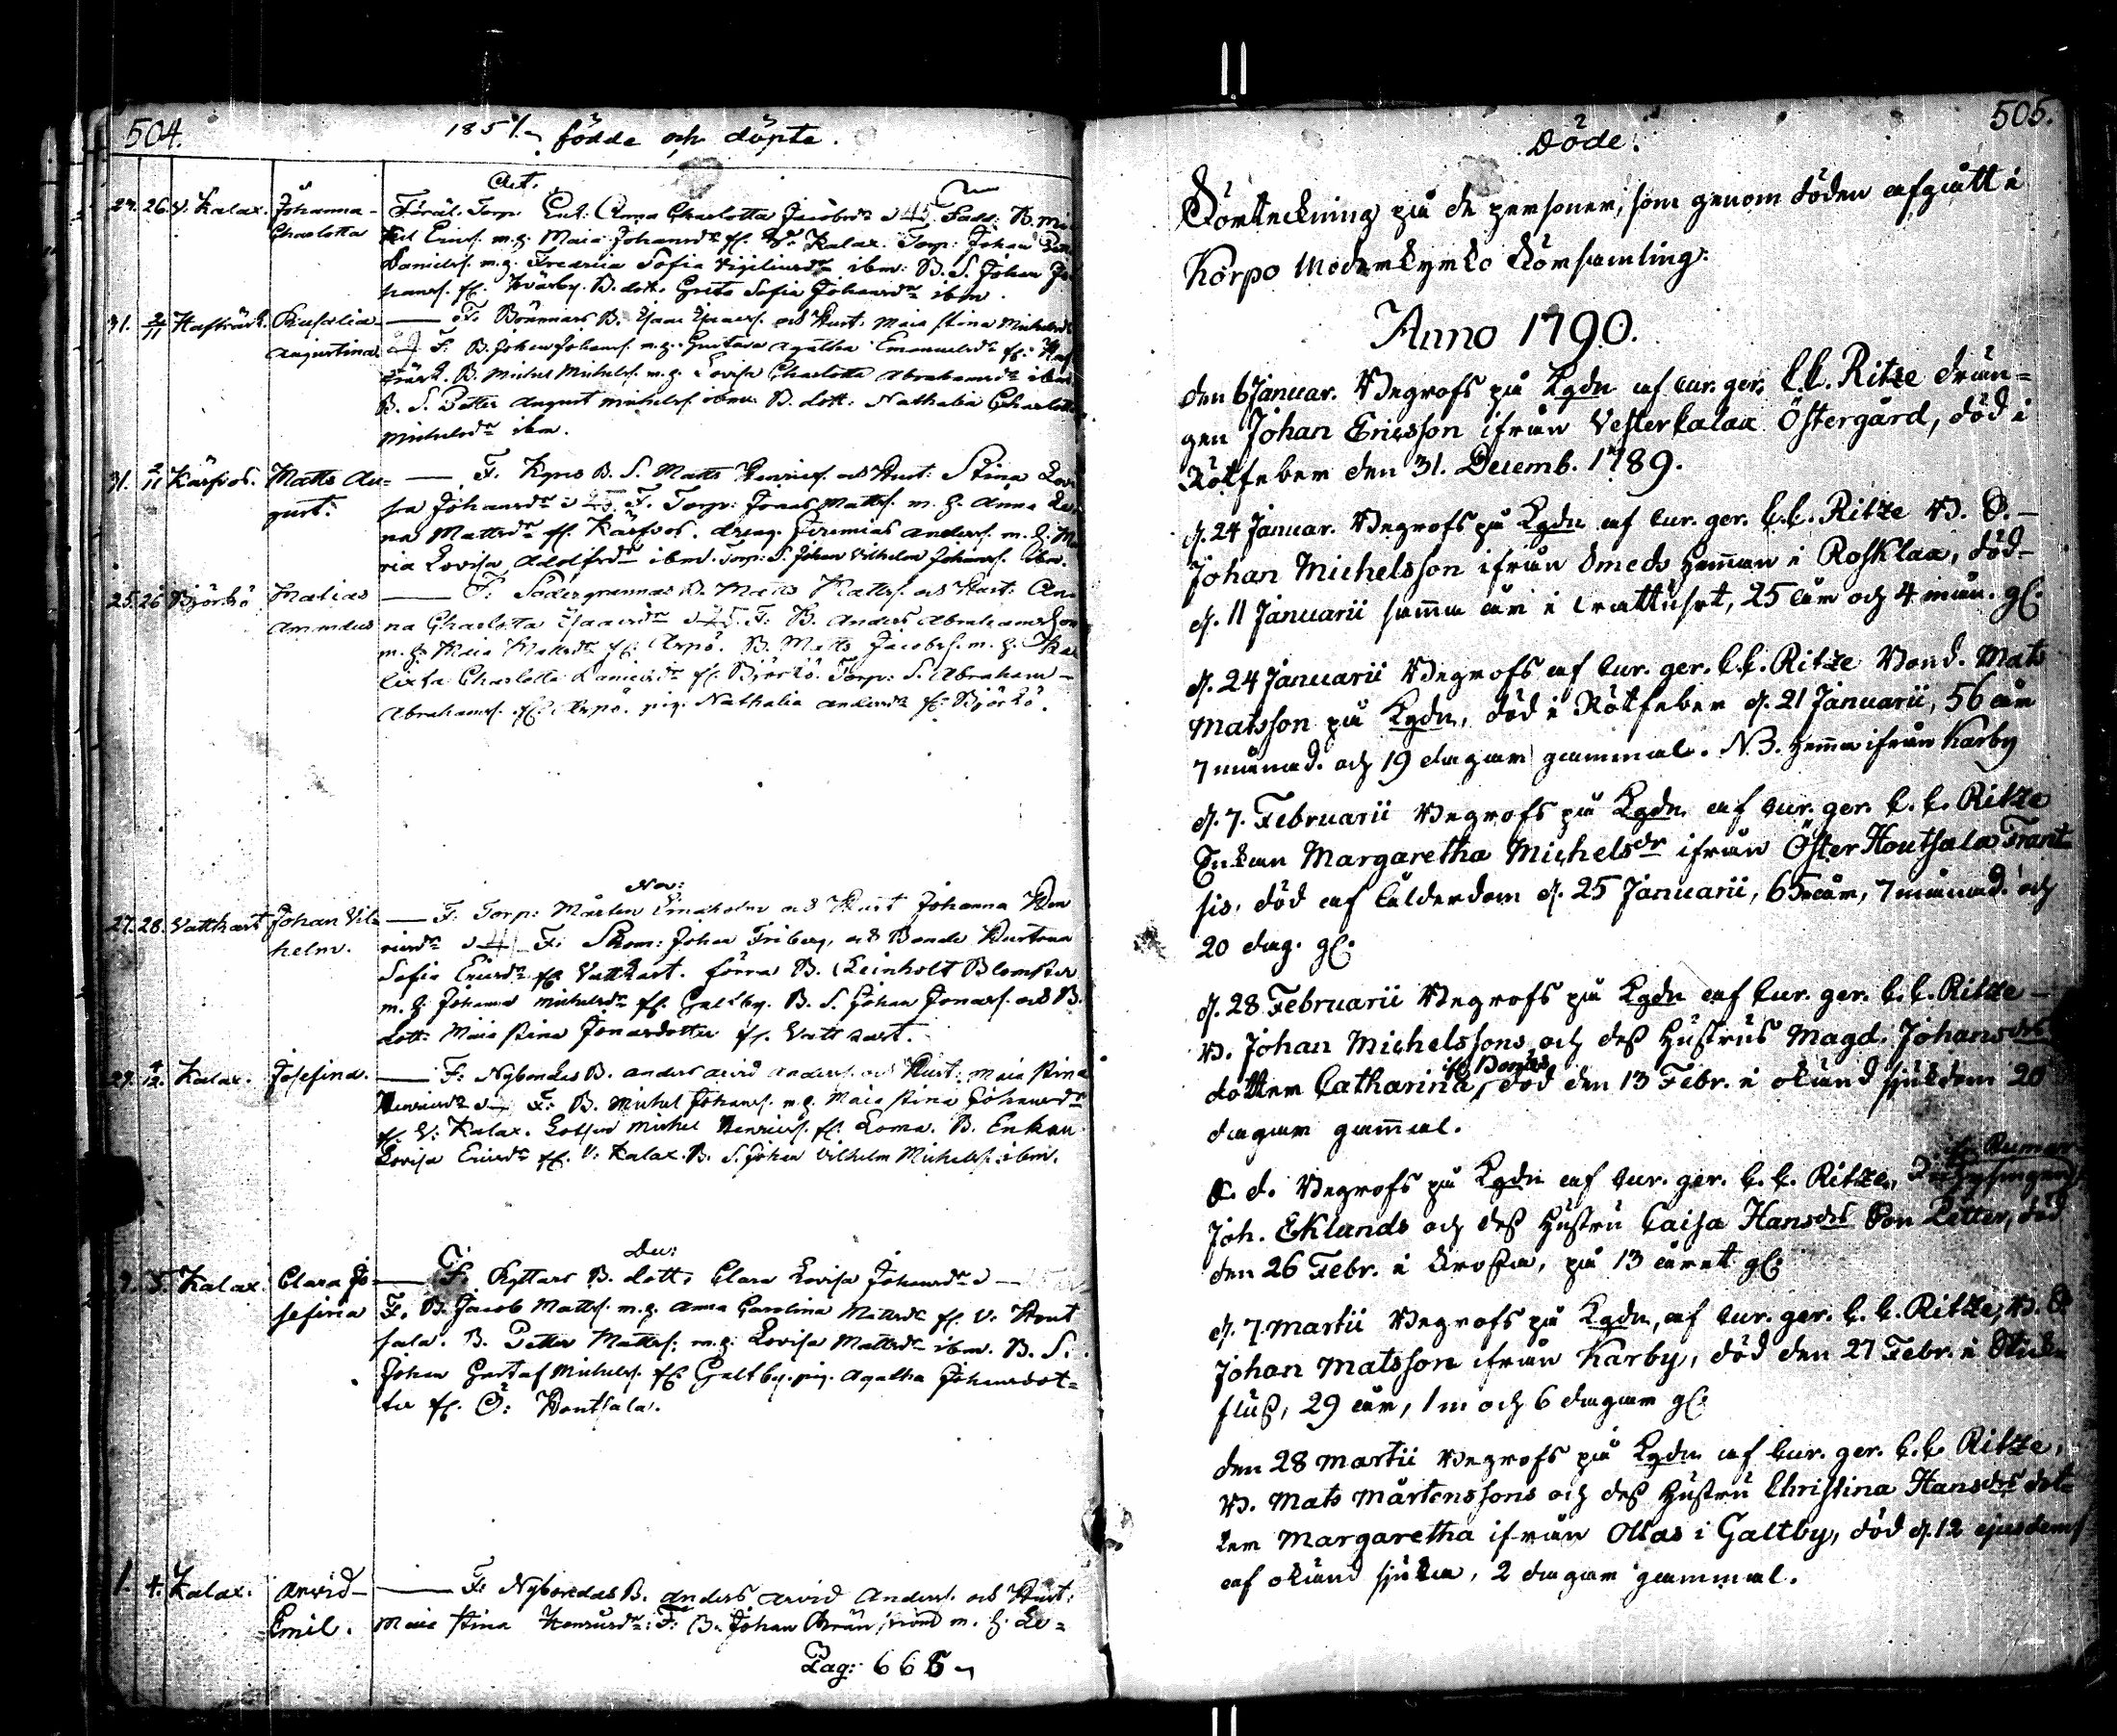 504.
1851. födde och döpte.
Oct.
29. 26. V. Kalax. Johanna Charlotta
Föräl. Torp. Enk: Anna Charlotta Jacobsdr Fadd: B. Mi
kel Ericss. m. h. Maria Johansdr fr. V. Kalax. Torp: Johan
Danielss. m. h. Fredrica Sofia ibm: B. S. Johan Jo
hanss. fr. B. dott. Greta Sofia Johansdr ibm.
31. 2/11 Hafträsk. Rusalia Augustina
F: Bönnars B. Isaac Isaacss. och Hust. Maia Stina Michelsdr
F: B. Johan Johanss. m. h. Gustava Agatha Emanuelsdr fr. Haf
träsk. B. Michel Michelss. m. h. Lovisa Charlotta Abrahamsdr ibm
B. S. Petter August Michelss. ibm. B. dott: Nathalia Charlotta
Michelsdr ibm.
31. 2/11 Kärfvos. Matts Au=
gust.
F: B. S. Matts Henricss. och Hust: Stina Lovi
sa Johansdr F. Torp: Jonas Mattss. m. h. Anna
na Mattsdr fr. Kärfvos. dreng. Jeremias Anderss. m. h. Ma
ria Lovisa Adolfsdr ibm. Torp: S. Johan Vilhelm Johanss. ibm.
25. 26 Björkö Matias Amandus
F: Södergrannas B. Matts Mattss. och Hust: An
na Charlotta Isaacsdr F: B. Anders Abrahamsson
m. h. Maia Matsdr fr. Arpö. B. Matts Jacobss. m. h.
lixta Charlotta Danielsdr fr. Björkö. Torp: S. Abraham
Abrahamss. fr. Arpö. pig. Nathalia Andersdr fr. Björkö.
Nov:
27. 28. Vattkast Johan Vil=
helm.
F: Torp: Mårten Linholm och Hust Johanna Hen
ricsdr F: Skom: Johan Friberg, och Bonde Hustrun
Sofia Ericsdr fr. Vattkast. förra B. Reinholt Blomster
m. h. Johanna Michelsdr fr. Galtby. B. S. Johan Jonass. och B.
dott: Maia Stina Jonasdotter fr. Vattkast.
29. 1/12. Kalax. Josefina.
F: Nybondas B. Anders Arvid Anderss. och Hust: Maia Stina
Henricsdr F: B. Michel Johanss. m. h. Maia Stina Johansdr
fr. V. Kalax. Lotsen Michel Henricss. fr. Loma. B. Enkan
Lovisa Ericsdr fr. V. Kalax. B. S. Johan Vilhelm Michelss. ibm.
Dec:
5. Kalax. Clara Jo
sefina
F: Kyttars B. dott. Clara Lovisa Johansdr
F. B. Jacob Mattss. m. h. Anna Carolina Mattsdr fr. V. Hout
sala. B. Petter Mattss. m. h. Lovisa Mattsdr ibm. B. S.
Johan Gustaf Michelss. fr. Galtby. pig. Agatha Johansdot=
ter fr. Ö: Houtsala.
1. 4. Kalax. Arvid
Emil.
F: Nybondas B. Anders Arvid Anderss. och Hust:
Maia Stina Henricsdr: F: B. Johan Grönstrand m. h. Lo=
Pag: 665
505.
Döde.
Förteckning på de personer, som genom döden afgått i
Korpo Moderkyrko Församling.
Anno 1790.
den 6 Januar. Begrofs på Kgdn af Cur. ger. C. C. Ritze drän=
gen Johan Ericsson ifrån Vesterkalax Östergård, död i
Rötfeber den 31. Decemb. 1789.
d. 24 Januar. Begrofs på Kgdn af Cur. ger. C. C. Ritze B. S.
Johan Michelsson ifrån Smeds Hemman i Rosklax, död
d. 11 Januarii samma år i brattåst, 25 år och 4 mån. gl.
d. 24 Januarii Begrofs af Cur. ger. C. C. Ritze Bond. Mats
Matsson på Kgdn, död i Rötfeber d. 21 Januarii, 56 år
7 månad. och 19 dagar gammal. NB. hemma ifrån Karby
d. 7. Februarii Begrofs på Kgdn af Cur. ger. C. C. Ritze
Enkan Margaretha Michelsdr ifrån Öster Houtsala Frant
sis, död af ålderdom d. 25 Januarii, 65 år, 7 månad. och
20 dag. gl.
d. 28 Februarii Begrofs på Kgdn af Cur. ger. C. C. Ritze
B. Johan Michelssons och dess Hustrus Magd. Johansdrs
dotter Catharina, död den 13 Febr. i okänd sjukdom 20
dagar gammal.
E. d. Begrofs på Kgdn af Cur. ger. C. C. Ritze,
Joh. Eklunds och dess Hustru Caisa Hansdrs Son Petter, död
den 26 Febr. i Trossa, på 13 året gl.
d. 7 Martii Begrofs på Kgdn, af Cur. ger. C. C. Ritze, B. S.
Johan Matsson ifrån Karby, död den 27 Febr. i Stick
fluss, 29 år, 1 m och 6 dagar gl.
den 28 Martii Begrofs på Kgdn af Cur. ger. C. C. Ritze,
B. Mats Mårtenssons och dess Hustru Christina Hansdrs dot=
ter Margaretha ifrån Ollas i Galtby, död d. 12 ejusdem
af okänd sjuka, 2 dagar gammal.